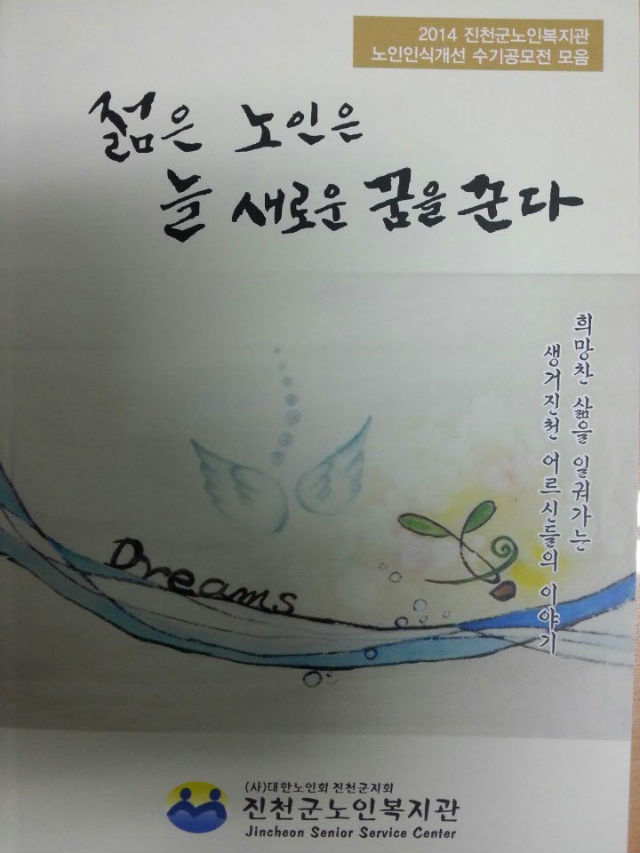 2014 진천군노인복지관
노인인식개선 수기공모전 모음
젊은 노인은
늘 새로운 꿈을 꾼다
희망찬 삶을 일궈가는
생거진천 어르신들의 이야기
Dreams
(사)대한노인회 진천군지회
진천군노인복지관
Jincheon Senior Service Center